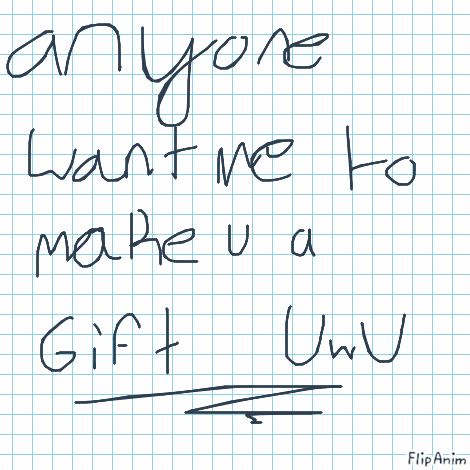 anyone
want me to
make u a
Gift UwU
FlipAnim